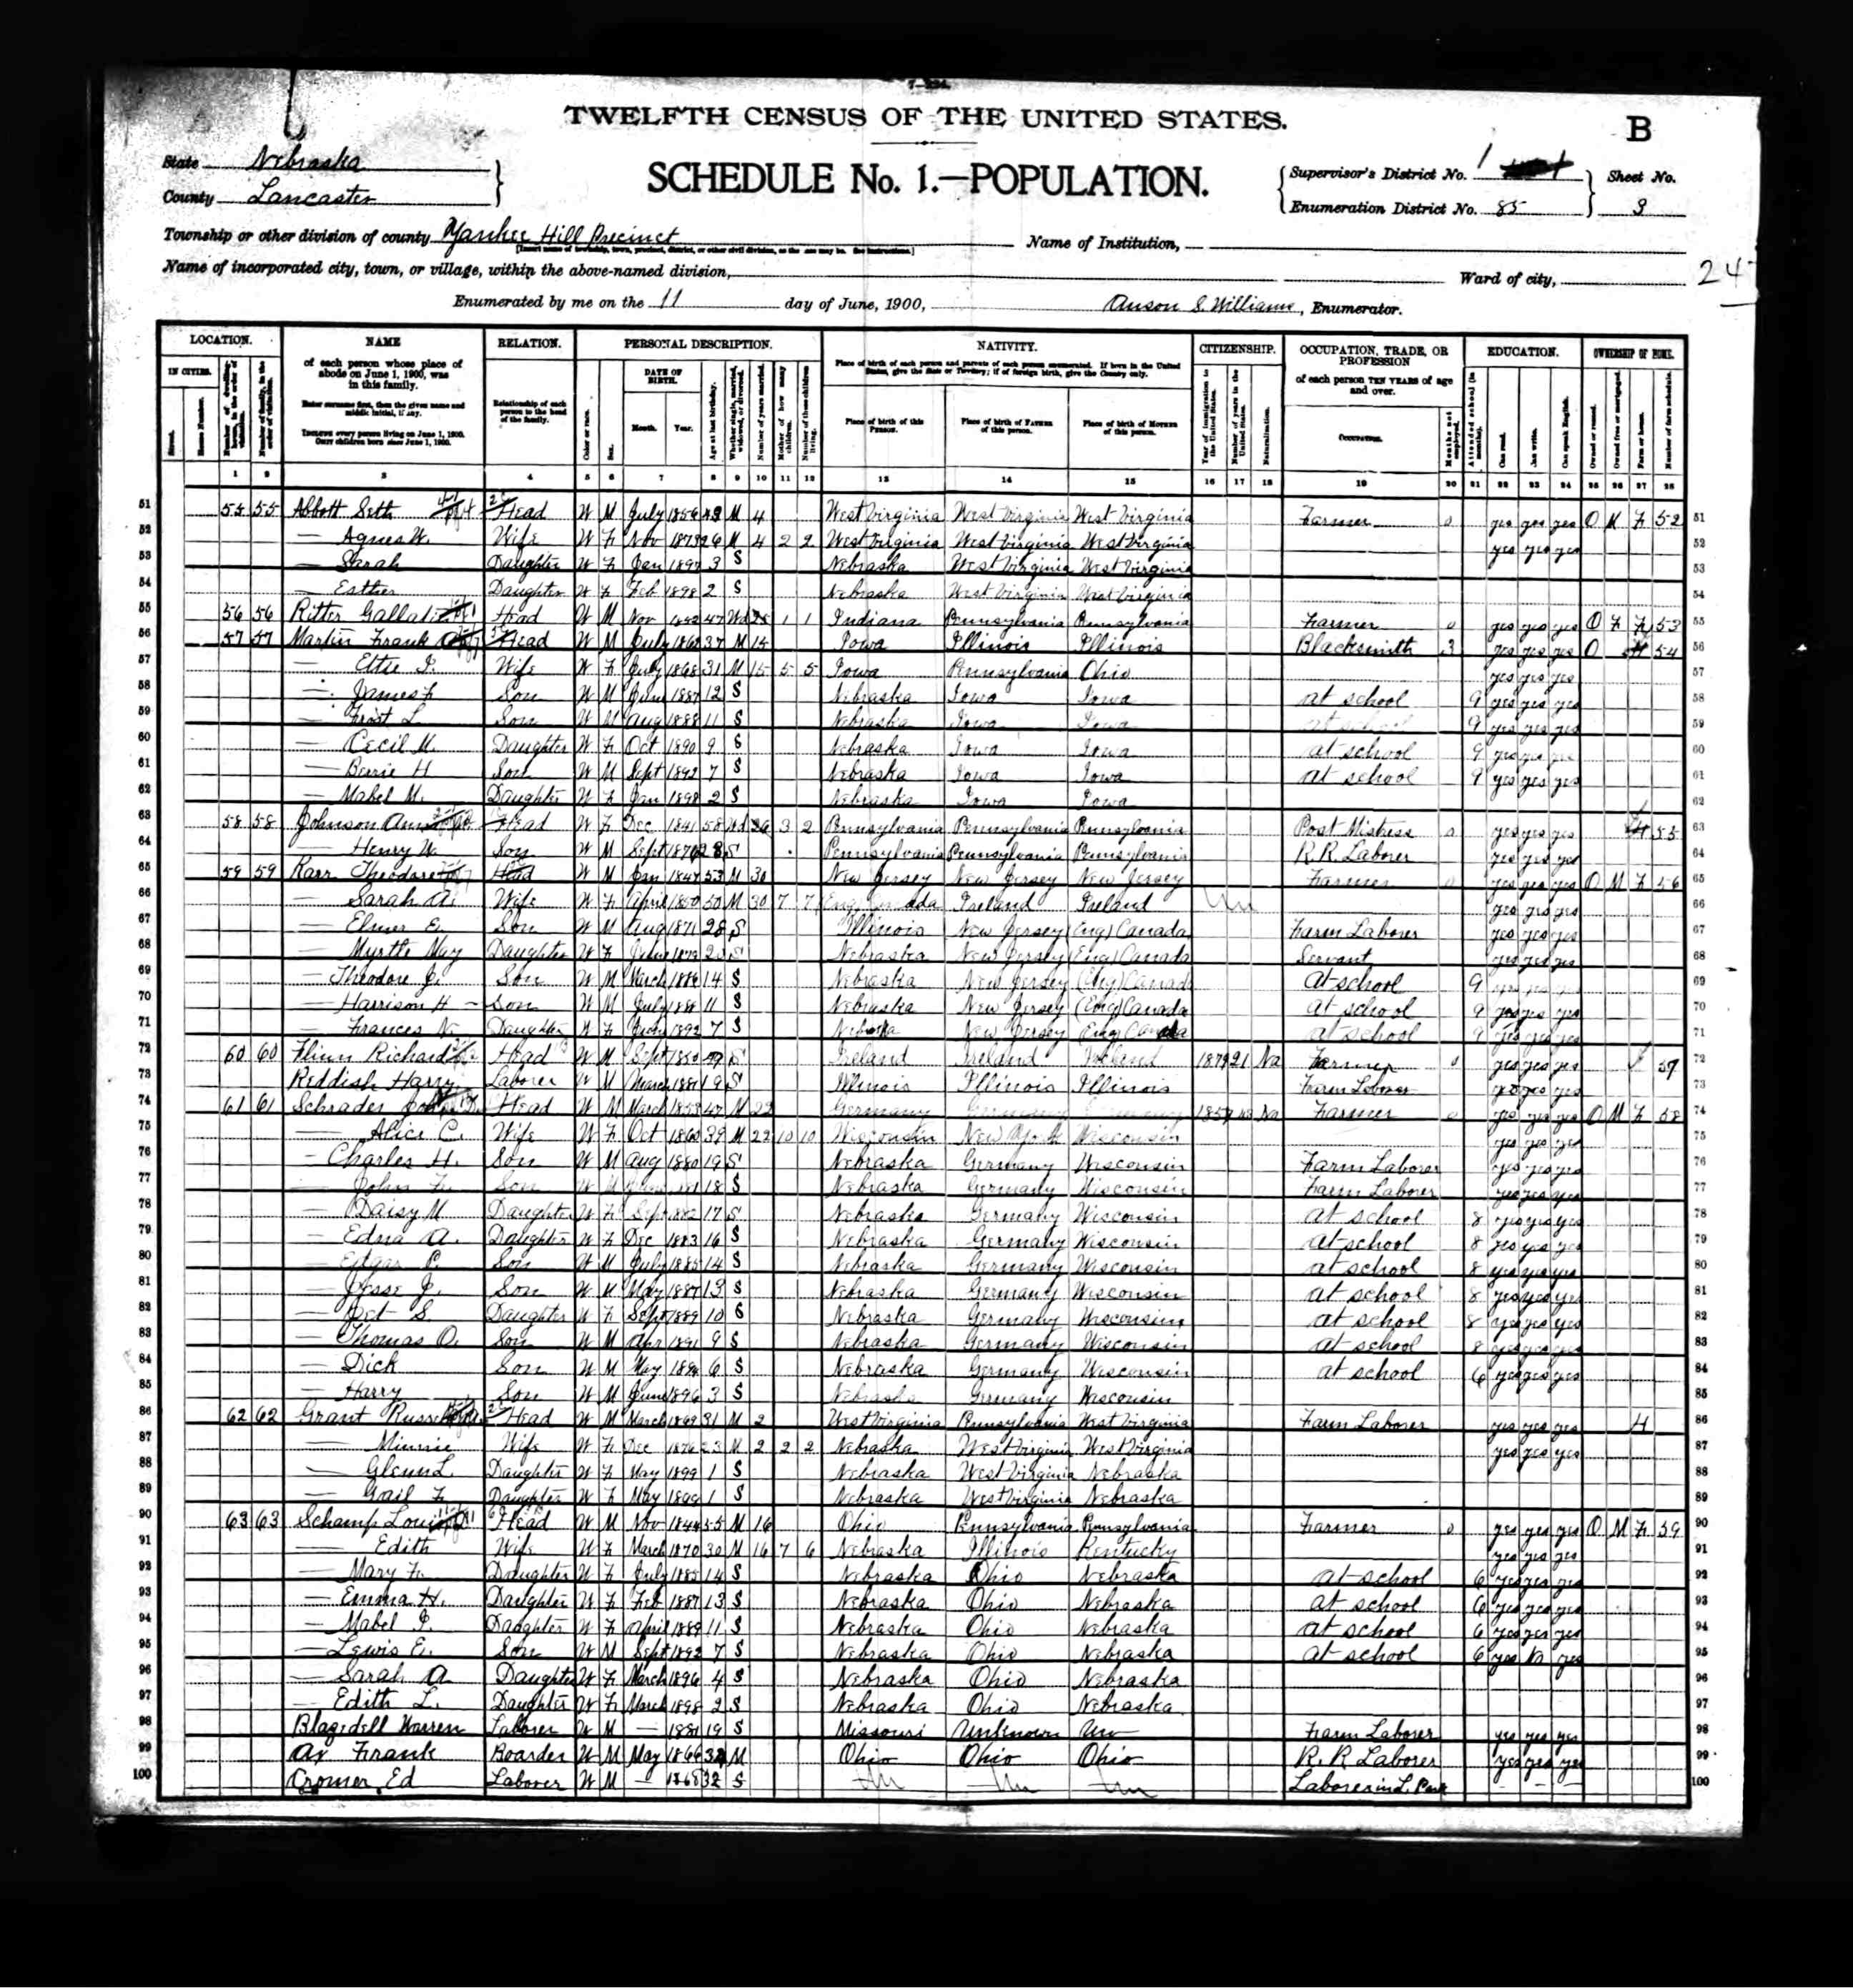 TWELFTH CENSUS OF THE UNITED STATES.
B
State Nebraska
County Lancaster
SCHEDULE No. 1.—POPULATION.
Supervisor's District No. 1
Enumeration District No. 85
Sheet No.
3
Township or other division of county Yankee Hill Precinct
Name of Institution,
Name of incorporated city, town, or village, within the above-named division,
Ward of city,
24
Enumerated by me on the 11 day of June, 1900, Anson S. Williams, Enumerator.
LOCATION. NAME RELATION. PERSONAL DESCRIPTION. NATIVITY. CITIZENSHIP. OCCUPATION, TRADE, OR PROFESSION EDUCATION. OWNERSHIP OF HOME.
IN CITIES. of each person whose place of abode on June 1, 1900, was in this family. Relationship of each person to the head of the family. DATE OF BIRTH. of each person TEN YEARS of age and over.
Place of birth of this Person. Place of birth of Father of this person. Place of birth of Mother of this person. Occupation.
1 2 3 4 5 6 7 8 9 10 11 12 13 14 15 16 17 18 19 20 21 22 23 24 25 26 27 28
51 55 55 Abbott Seth Head W M July 1856 43 M 4 West Virginia West Virginia West Virginia Farmer 0 yes yes yes O M F 52 51
52 — Agnes W. Wife W F Nov 1873 26 M 4 2 2 West Virginia West Virginia West Virginia yes yes yes 52
53 — Sarah Daughter W F Jan 1897 3 S Nebraska West Virginia West Virginia 53
54 — Esther Daughter W F Feb 1898 2 S Nebraska West Virginia West Virginia 54
55 56 56 Ritter Head W M Nov 1852 47 Wd 1 1 Indiana Pennsylvania Pennsylvania Farmer 0 yes yes yes O F F 53 55
56 57 57 Martin Frank Head W M July 37 M 15 Iowa Illinois Illinois Blacksmith 3 yes yes yes O 54 56
57 — Wife W F July 1868 31 M 15 5 5 Iowa Pennsylvania Ohio yes yes yes 57
58 — James Son W M June 1887 12 S Nebraska Iowa Iowa at school 9 yes yes yes 58
59 — L. Son W M Aug 1888 11 S Nebraska Iowa Iowa at school 9 yes yes yes 59
60 — Cecil M. Daughter W F Oct 1890 9 S Nebraska Iowa Iowa at school 9 yes yes yes 60
61 — H Son W M Sept 1892 7 S Nebraska Iowa Iowa at school 9 yes yes yes 61
62 — Mabel M. Daughter W F Jan 1898 2 S Nebraska Iowa Iowa 62
63 58 58 Johnson Head W F Dec 1841 58 Wd 3 2 Pennsylvania Pennsylvania Pennsylvania Post Mistress 0 yes yes yes 55 63
64 — Henry W. Son W M Sept 28 S Pennsylvania Pennsylvania Pennsylvania R. R. Laborer yes yes yes 64
65 59 59 Karr Theodore Head W M Jan 1847 53 M 30 New Jersey New Jersey New Jersey Farmer 0 yes yes yes O M F 56 65
66 — Sarah A. Wife W F April 1850 50 M 30 7 7 Ireland Ireland Un yes yes yes 66
67 — Elmer E. Son W M Aug 1871 28 S Illinois New Jersey (Eng) Canada Farm Laborer yes yes yes 67
68 — Myrtle May Daughter W F S Nebraska New Jersey (Eng) Canada Servant yes yes yes 68
69 — Theodore J. Son W M March 1886 14 S Nebraska New Jersey (Eng) Canada at school 9 yes yes yes 69
70 — Harrison H — Son W M July 1888 11 S Nebraska New Jersey (Eng) Canada at school 9 yes yes yes 70
71 — Frances N. Daughter W F 1892 7 S Nebraska New Jersey (Eng) Canada at school 9 yes yes yes 71
72 60 60 Flinn Richard Head W M Sept 1850 49 S Ireland Ireland Ireland 1879 21 Na Farmer 0 yes yes yes 57 72
73 Reddish Harry Laborer W M March 1881 19 S Illinois Illinois Illinois Farm Laborer yes yes yes 73
74 61 61 Schrader Head W M March 1853 47 M 22 Germany Germany Germany 1857 43 Na Farmer 0 yes yes yes O M F 58 74
75 — Alice C. Wife W F Oct 1860 39 M 22 10 10 Wisconsin New York Wisconsin yes yes yes 75
76 — Charles H. Son W M Aug 1880 19 S Nebraska Germany Wisconsin Farm Laborer yes yes yes 76
77 — John F. Son W M 1881 18 S Nebraska Germany Wisconsin Farm Laborer yes yes yes 77
78 — Daisy M Daughter W F Sept 1882 17 S Nebraska Germany Wisconsin at school 8 yes yes yes 78
79 — Edna A. Daughter W F Dec 1883 16 S Nebraska Germany Wisconsin at school 8 yes yes yes 79
80 — Edgar Son W M July 1885 14 S Nebraska Germany Wisconsin at school 8 yes yes yes 80
81 — Jesse J. Son W M May 1887 13 S Nebraska Germany Wisconsin at school 8 yes yes yes 81
82 — S. Daughter W F Sept 1889 10 S Nebraska Germany Wisconsin at school 8 yes yes yes 82
83 — Thomas O. Son W M Apr 1891 9 S Nebraska Germany Wisconsin at school 8 yes yes yes 83
84 — Dick Son W M May 1894 6 S Nebraska Germany Wisconsin at school 6 yes yes yes 84
85 — Harry Son W M June 1896 3 S Nebraska Germany Wisconsin 85
86 62 62 Grant Russell Head W M March 1869 31 M 2 West Virginia Pennsylvania West Virginia Farm Laborer yes yes yes H 86
87 — Minnie Wife W F Dec 1876 23 M 2 2 2 Nebraska West Virginia West Virginia yes yes yes 87
88 — Glenn L Daughter W F May 1899 1 S Nebraska West Virginia Nebraska 88
89 — Gail F Daughter W F May 1899 1 S Nebraska West Virginia Nebraska 89
90 63 63 Schamp Louis Head W M Nov 1844 55 M 16 Ohio Pennsylvania Pennsylvania Farmer 0 yes yes yes O M F 59 90
91 — Edith Wife W F March 1870 30 M 16 7 6 Nebraska Illinois Kentucky yes yes yes 91
92 — Mary F. Daughter W F July 1885 14 S Nebraska Ohio Nebraska at school 6 yes yes yes 92
93 — Emma H. Daughter W F Feb 1887 13 S Nebraska Ohio Nebraska at school 6 yes yes yes 93
94 — Mabel Daughter W F April 1889 11 S Nebraska Ohio Nebraska at school 6 yes yes yes 94
95 — Lewis E. Son W M Sept 1892 7 S Nebraska Ohio Nebraska at school 6 yes yes 95
96 — Sarah A Daughter W F March 1896 4 S Nebraska Ohio Nebraska 96
97 — Edith L. Daughter W F March 1898 2 S Nebraska Ohio Nebraska 97
98 Blazedell Warren Laborer W M — 1881 19 S Missouri Unknown Un Farm Laborer yes yes yes 98
99 Ax Frank Boarder W M May 1866 M Ohio Ohio Ohio R. R Laborer yes yes yes 99
100 Cromer, Ed Laborer W M — 1868 32 S Un Un Un Laborer in L. Park 100